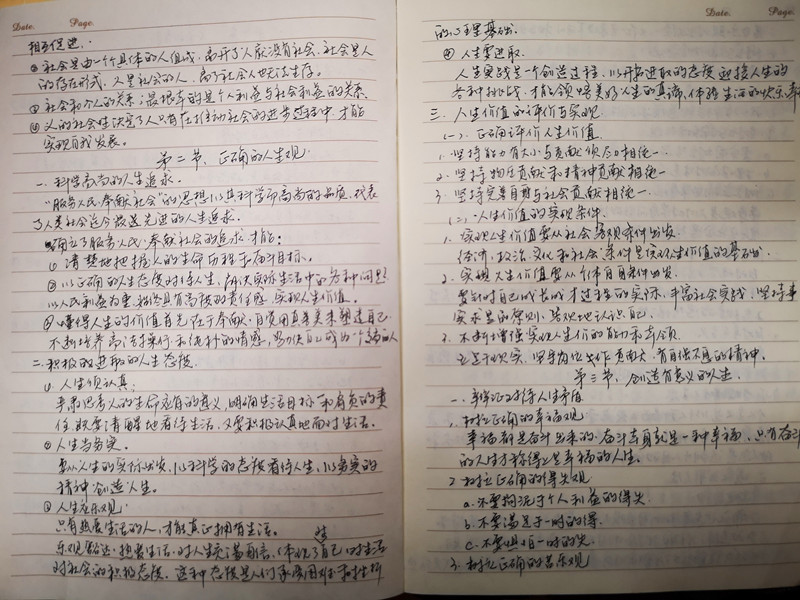 Date. Page.
相互促进.
② 社会是由一个个具体的人组成,离开了人就没有社会.社会是人
的存在形式,人是社会的人,离了社会人也无法生存。
③ 社会和个人的关系:最根本的是个人利益与社会利益的关系.
④ 人的社会性决定了人只有在推动社会的进步过程中,才能
实现自我发展。
第二节、正确的人生观.
一.科学高尚的人生追求.
"服务人民、奉献社会"的思想以其科学而高尚的品质,代表
了人类社会迄今最先进的人生追求.
确立了服务人民、奉献社会的追求才能:
① 清楚地把握人的生命历程和奋斗目标。
② 以正确的人生态度对待人生,解决实际生活中的各种问题.
以人民利益为重 始终具有高度的责任感,实现人生价值。
③ 懂得人生的价值首先在于奉献.自觉用真善美来塑造自己.
不断培养高洁的操行和纯朴的情感,努力使自己成为一个高尚的人
二.积极的进取的人生态度.
①. 人生须认真:
严肃思考人的生命应有的意义,明确生活目标和肩负的责
任 既要清醒地看待生活,又要积极认真地面对生活。
② 人生当务实.
要从人生的实际出发,以科学的态度看待人生,以务实的
精神创造人生。
③ 人生应乐观.
只有热爱生活的人,才能真正拥有生活。
乐观豁达、热爱生活、对人生充满自信,体现了自己对生活
对社会的积极态度,这种态度是人们承受困难和挫折
Date. Page.
的心理基础.
④ 人生要进取.
人生实践是一个创造过程,以开拓进取的态度迎接人生的
各种挑战,才能领略美好人生的真谛,体验生活的快乐幸
三、人生价值的评价与实现
(一). 正确评价人生价值
1. 坚持能力有大小与贡献须尽力相统一.
2. 坚持物质贡献和精神贡献相统一
3. 坚持完善自身与社会贡献相统一
(二).人生价值的实现条件.
1. 实现人生价值要从社会客观条件出发.
经济、政治、文化和社会条件是实现人生价值的基础.
2. 实现人生价值要从个体自身条件出发.
要针对自己成长成才过程的实际,丰富社会实践,坚持事
实求是的原则,客观地认识自己.
3. 不断增强实现人生价值的能力和本领.
立足于现实,坚守岗位做贡献,有自强不息的精神.
第三节、创造有意义的人生.
一、辩证对待人生矛盾
1. 树立正确的幸福观
幸福都是奋斗出来的.奋斗本身就是一种幸福,只有奋斗
的人生才称得上是幸福的人生。
2 树立正确的得失观
a.不要拘泥于个人利益的得失
b.不要满足于一时的得.
c.不要惧怕一时的失.
3. 树立正确的苦乐观